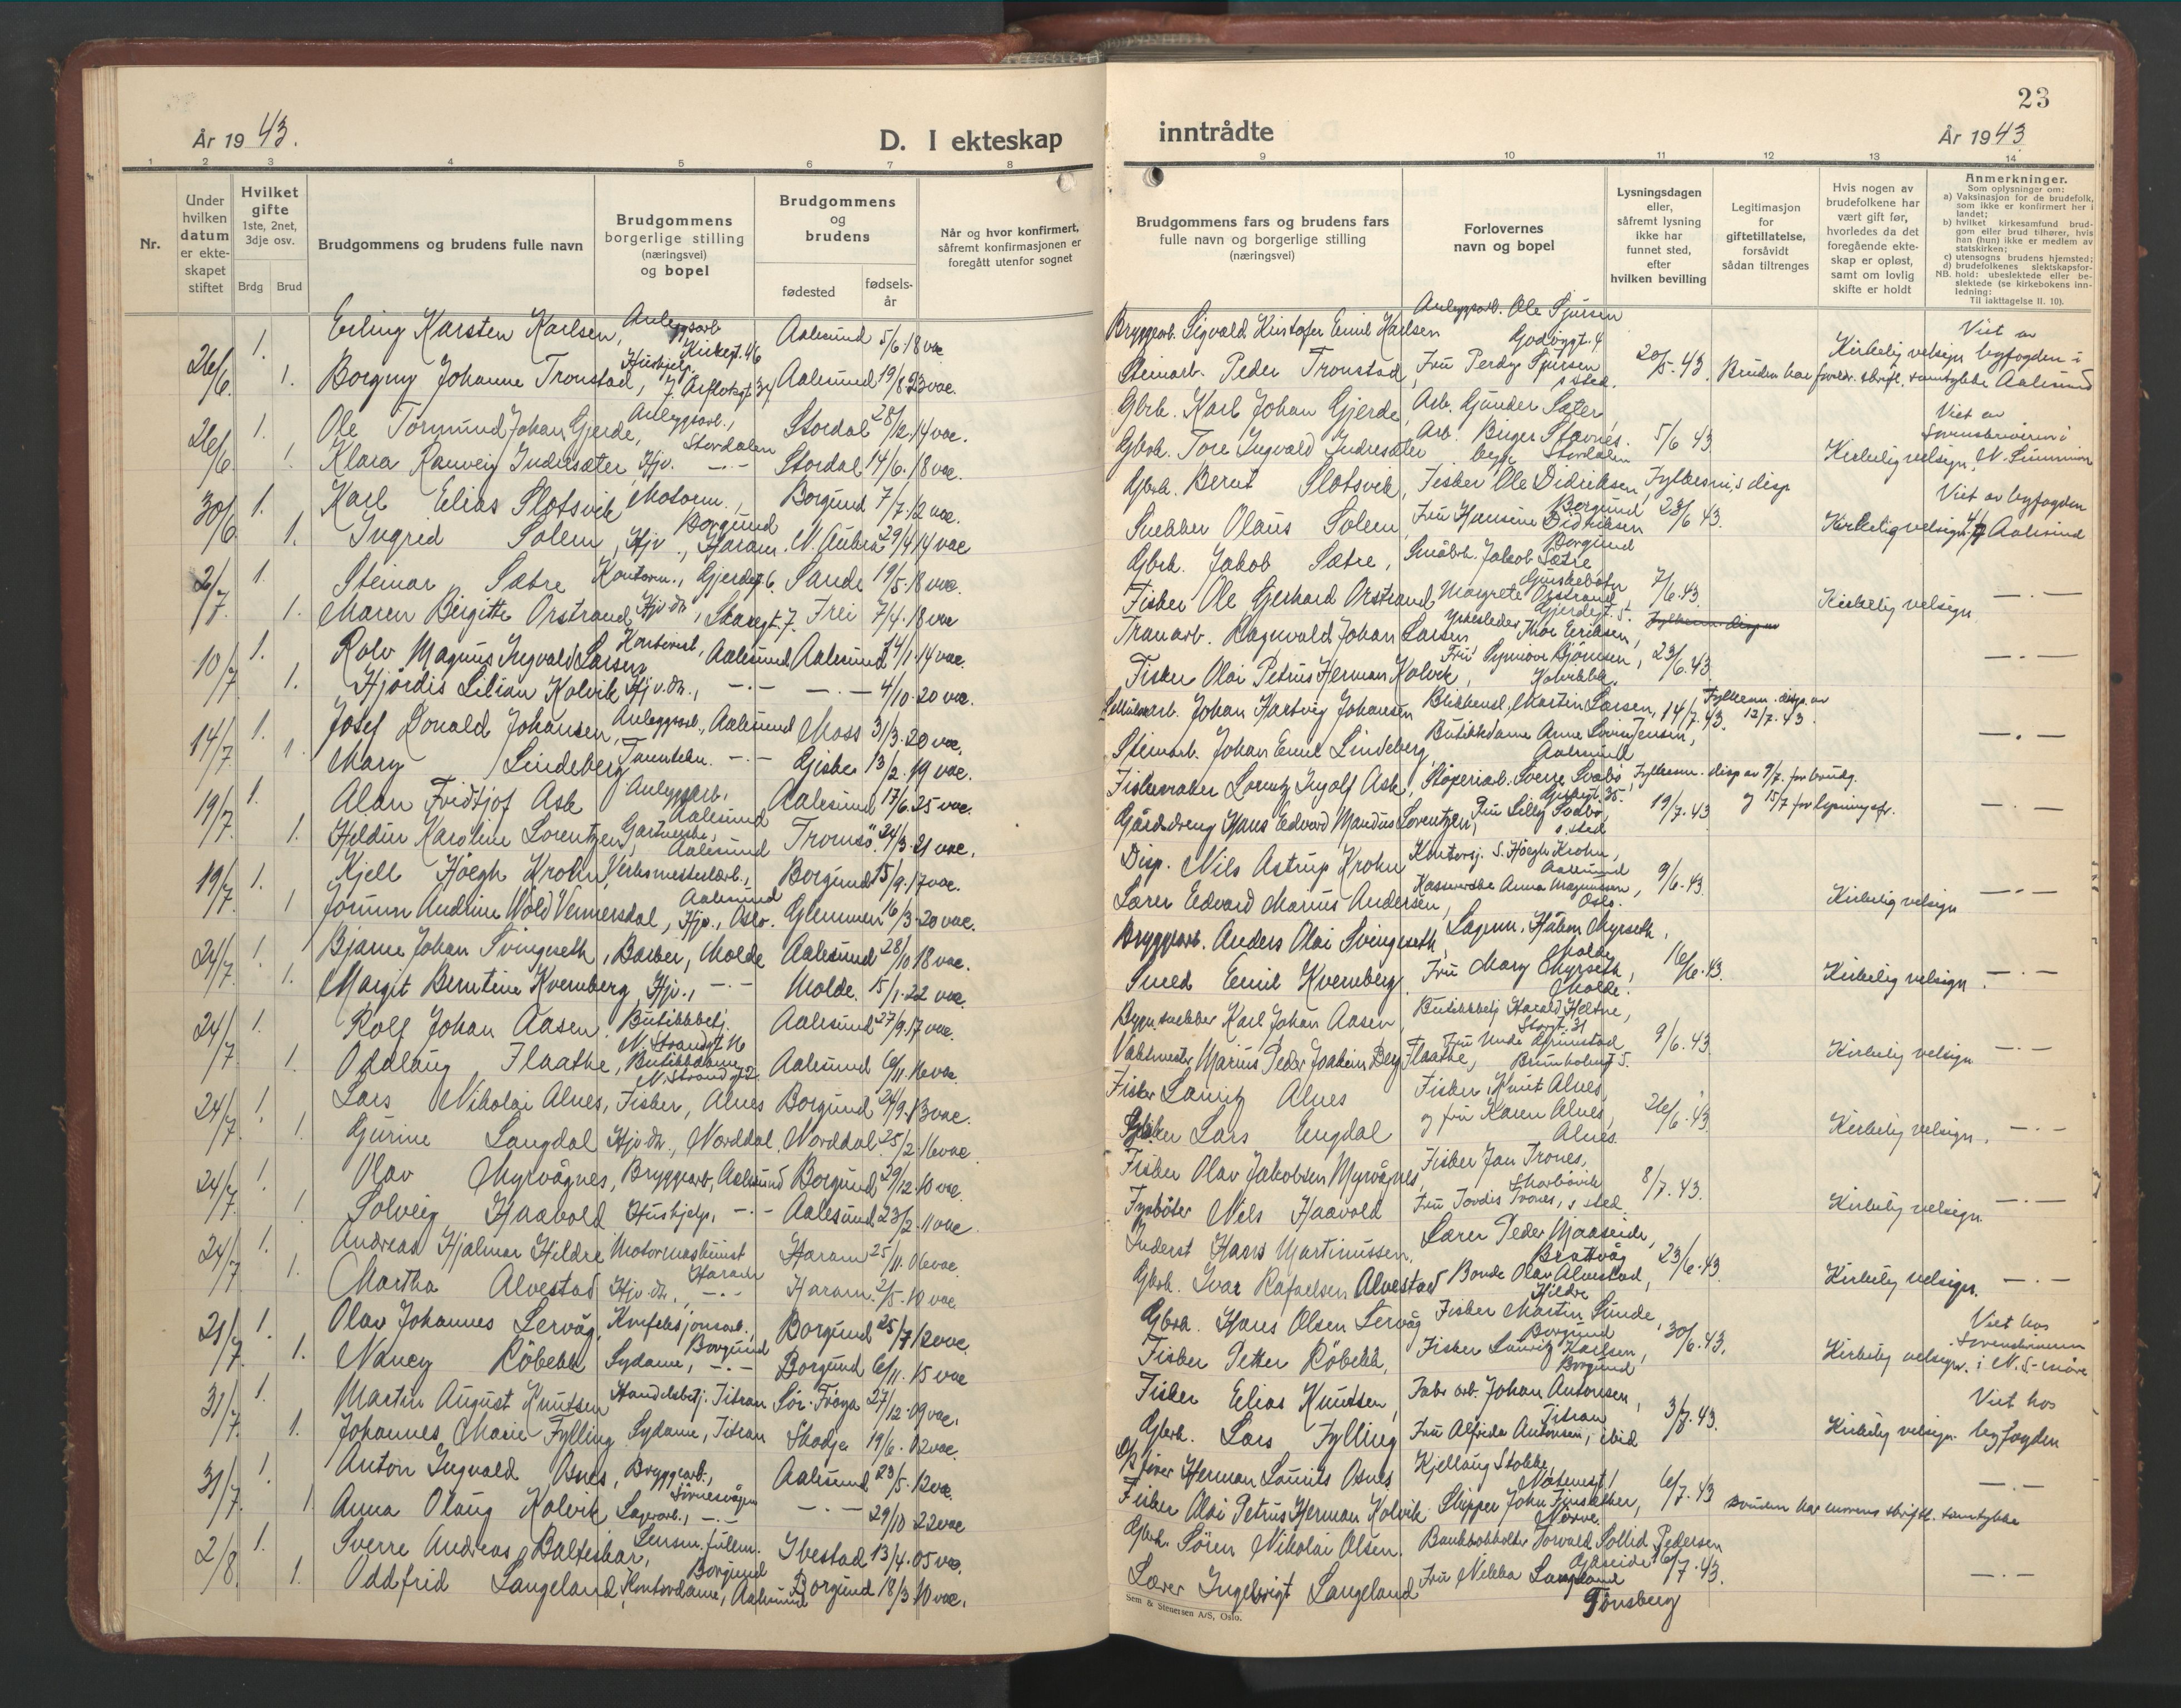 23
År 1943.
D. I ekteskap
inntrådte
År 1943
1 2 3 4 5 6 7 8
9 10 11 12 13 14
Nr.
Under hvilken datum er ekteskapet stiftet
Hvilket gifte 1ste, 2net, 3dje osv.
Brdg Brud
Brudgommens og brudens fulle navn
Brudgommens borgerlige stilling (næringsvei) og bopel
Brudgommens og brudens
fødested
fødselsår
Når og hvor konfirmert, såfremt konfirmasjonen er foregått utenfor sognet
Brudgommens fars og brudens fars fulle navn og borgerlige stilling (næringsvei)
Forlovernes navn og bopel
Lysningsdagen eller, såfremt lysning ikke har funnet sted, efter hvilken bevilling
Legitimasjon for giftetillatelse, forsåvidt sådan tiltrenges
Hvis nogen av brudefolkene har vært gift før, hvorledes da det foregående ekteskap er opløst, samt om lovlig skifte er holdt
Anmerkninger.
Som oplysninger om:
a) Vaksinasjon for de brudefolk, som ikke er konfirmert her i landet;
b) hvilket kirkesamfund brudgom eller brud tilhører, hvis han (hun) ikke er medlem av statskirken;
c) utensogns brudens hjemsted;
d) brudefolkenes slektskapsforhold: ubeslektede eller beslektede (se kirkebokens innledning:
NB.
Til iakttagelse II. 10).
26/6 1. Erling Karsten Karlsen, Anleggsarb Kirkegt. 46 Aalesund 5/6.18 vac.
Bryggearb. Sigvald Kristofer Emil Karlsen Anleggsarb. Ole Sjursen Godøygt. 4 20/5-43 Kirkelig velsign Viet av byfogden i Aalesund
1. Borgny Johanne Tronstad, Hushjelp, Aalesund 19/8 23 vac.
Steinarb. Peder Tronstad, Fru Perdy Sjursen s. sted. Bruden har foreldr. skriftl. samtykke
26/6 1. Ole Tormund Johan Gjerde, Anleggsarb., Stordalen Stordal 28/12.14 vac.
Gbrk. Karl Johan Gjerde, Arb. Gunder Sæter, 5/6 43 Kirkelig velsign, Viet av Sorenskriveren i N. Sunnmøre
1. Klara Ranveig Indresæter, Hjv. -.- Stordal 14/6.18 vac.
Gbrk. Tore Ingvald Indresæter Arb. Birger Stavnes. begge Stordalen
30/6 1. Karl Elias Slotsvik Motorm., Borgund Borgund 7/7.12 vac.
Gbrk. Bernt Slotsvik, Fisker Ole Didriksen, Borgund Fylkesm.s disp. 23/6 43. Kirkelig velsign. Viet av byfogden Aalesund
1. Ingrid Solem, Hjv., Haram. 29/4 14 vac
Snekker Olaus Solem, Fru Hansine Didriksen Borgund
2/7 1. Steinar Sætre Kontorm., Gjerdegt. 6. Sande 19/5.18 vac.
Gbrk. Jakob Sætre, Småbrk. Jakob Sætre 7/6.43. Kirkelig velsign. -.-
1. Maren Birgitte Orstrand, Hjv. dtr., Skaregt. 7. Frei 7/4.18 vac
Fisker Ole Gjerhard Orstrand Margrete Orstrand Gjerdegt. 5.
10/7 1. Rolv Magnus Ingvald Larsen Kontorist, Aalesund Aalesund 14 vac.
Tranarb. Ragnvald Johan Larsen Yrkesleder Thor Eriksen, 23/6.43. -.-
1. Hjørdis Lilian Kolvik Hjv. dtr., -.- -.- 4/10.20 vac.
Fisker Olai Petrus Herman Kolvik,
14/7 1. Josef Donald Johansen, Anleggsarb., Aalesund Moss 31/3.20 vac.
Johan Hartvig Johansen Blikkensl. Martin Larsen, 14/7.43. Fylkesm. disp. av 12/7.43. -.-
1. Mary Lindeberg -.- Giske 13/2.19 vac.
Steinarb. Johan Emil Lindeberg, Butikkdame Anne Jensen, Aalesund
19/7 1. Alan Fridtjof Ask Anleggsarb., Aalesund Aalesund 17/6.25 vac.
Fiskemaker Lorentz Ingolf Ask, Støperiarb. Sverre Svabø, 19/7.43 Fylkesm. disp av 9/7. for brudg. og 15/7 for lysningsfr. -.-
1. Heldin Karoline Lorentzen, Aalesund Tromsø. 24/3.21 vac.
Gårdsdreng Hans Edvard Mandus Lorentzen, Fru Lilly Svabø, s. sted
19/7 1. Kjell Höegh Krohn, Verksmesterlærl., Aalesund Borgund 15/9.17 vac.
Disp. Nils Astrup Krohn Kontorsj. S. Höegh Krohn, Aalesund 9/6.43. Kirkelig velsign -.-
1 Jorunn Andrine Wold Vennersdal, Hjv., Oslo. Glemmen 16/3.20 vac.
Lærer Edvard Marius Andersen, Kassererske Anna Magnussen, Oslo.
24/7. 1. Bjarne Johan Svingeseth, Barber, Molde Aalesund 28/10 18 vac.
Bryggearb. Anders Olai Svingeseth, Lagerm. Håkon Myrseth, Molde 16/6.43. Kirkelig velsign. -.-
1. Margit Berntine Kvernberg Hjv., -.- Molde. 15/1.22 vac
Smed Emil Kvernberg. Fru Mary Myrseth, Molde.
24/7 1. Rolf Johan Aasen, Butikkbetj. N. Strandgt. 16 Aalesund 27/9.17 vac.
Bygn.snekker Karl Johan Aasen, Butikkbetj. Harald Heltne, Storgt. 31 9/6.43. Kirkelig velsign -.-
1. Oddlaug Flaathe, Butikkdame, Aalesund 6/11.16 vac.
Vaktmester Marius Peder Joakim Berg Flaathe, Brunholmgt 5.
24/7 1. Lars Nikolai Alnes, Fisker, Alnes Borgund 24/9.13 vac.
Fisker Lauritz Alnes Fisker Knut Alnes, 26/6.43. Kirkelig velsign, -.-
1. Gurine Langdal Hjv. dtr., Norddal. Norddal. 25/2.16 vac
Lars Engdal og fru Karen Alnes, Alnes.
24/7. 1. Olav Myrvågnes, Bryggearb, Aalesund Borgund 29/12.10 vac.
Fisker Olav Jakobsen Myrvågnes, Fisker Jan Trones, 8/7.43. Kirkelig velsign. -.-
1 Solveig Haavold Hushjelp, -.- Aalesund 23/2.11 vac.
Nils Haavold Fru Jordis Trones, s sted
24/7 1. Andreas Hjalmar Hildre Motormaskinist Haram Haram 25/11.06 vac.
Inderst Hans Martinussen, Lærer Peder Maaseide, Brattvåg 23/6.43. Kirkelig velsign. -.-
1. Martha Alvestad Hjv. dtr., -.- Haram. 2/5.10 vac
Gbrk. Ivar Rafaelsen Alvestad Bonde Olav Alvestad, Hildre
21/7. 1. Olav Johannes Lervåg, Konfeksjonsarb., Borgund Borgund 25/7 12 vac.
Gbrk. Hans Olsen Lervåg Fisker Martin Sunde, Borgund 30/6.43. Kirkelig velsign. Viet hos Sorenskriveren i N. S-møre
1. Nancy Röbekk Sydame, -.- Borgund 6/11.15 vac
Fisker Petter Röbekk, Fisker Lauritz Karlsen, Borgund
31/7. 1. Martin August Knutsen Handelsbetj. Titran Sör-Fröya 27/12.09 vac.
Fisker Elias Knutsen, Fabr. arb. Johan Antonsen, Titran 3/7.43. Kirkelig velsign. Viet hos byfogden
1. Johannes Marie Fylling Sydame, Titran Skodje 19/6.02 vac.
Gbrk. Lars Fylling Fru Alfrida Antonsen, ibid
31/7. 1. Anton Ingvald Osnes, Bryggearb., Aalesund 23/5.12 vac.
Herman Laurits Osnes Kjellaug Stokke, 6/7.43 -.-
1. Anna Olaug Kolvik Lagerarb., -.- -.- 29/10 22 vac
Fisker Olai Petrus Herman Kolvik Skipper John Nørve. Bruden har morens skriftl. samtykke
2/8. 1. Sverre Andreas Balteskar, Lensm. fullm. Borgund Ibestad 13/4.05 vac.
Gbrk. Sören Nikolai Olsen. Bankbokholder Torvald Sollid Pedersen 6/7.43. -.-
1. Oddfrid Langeland, Kontordame, Aalesund Borgund 18/3 10 vac.
Lærer Ingebrigt Langeland Fru Nekka Langeland Tönsberg
Sem & Stenersen A/S, Oslo.